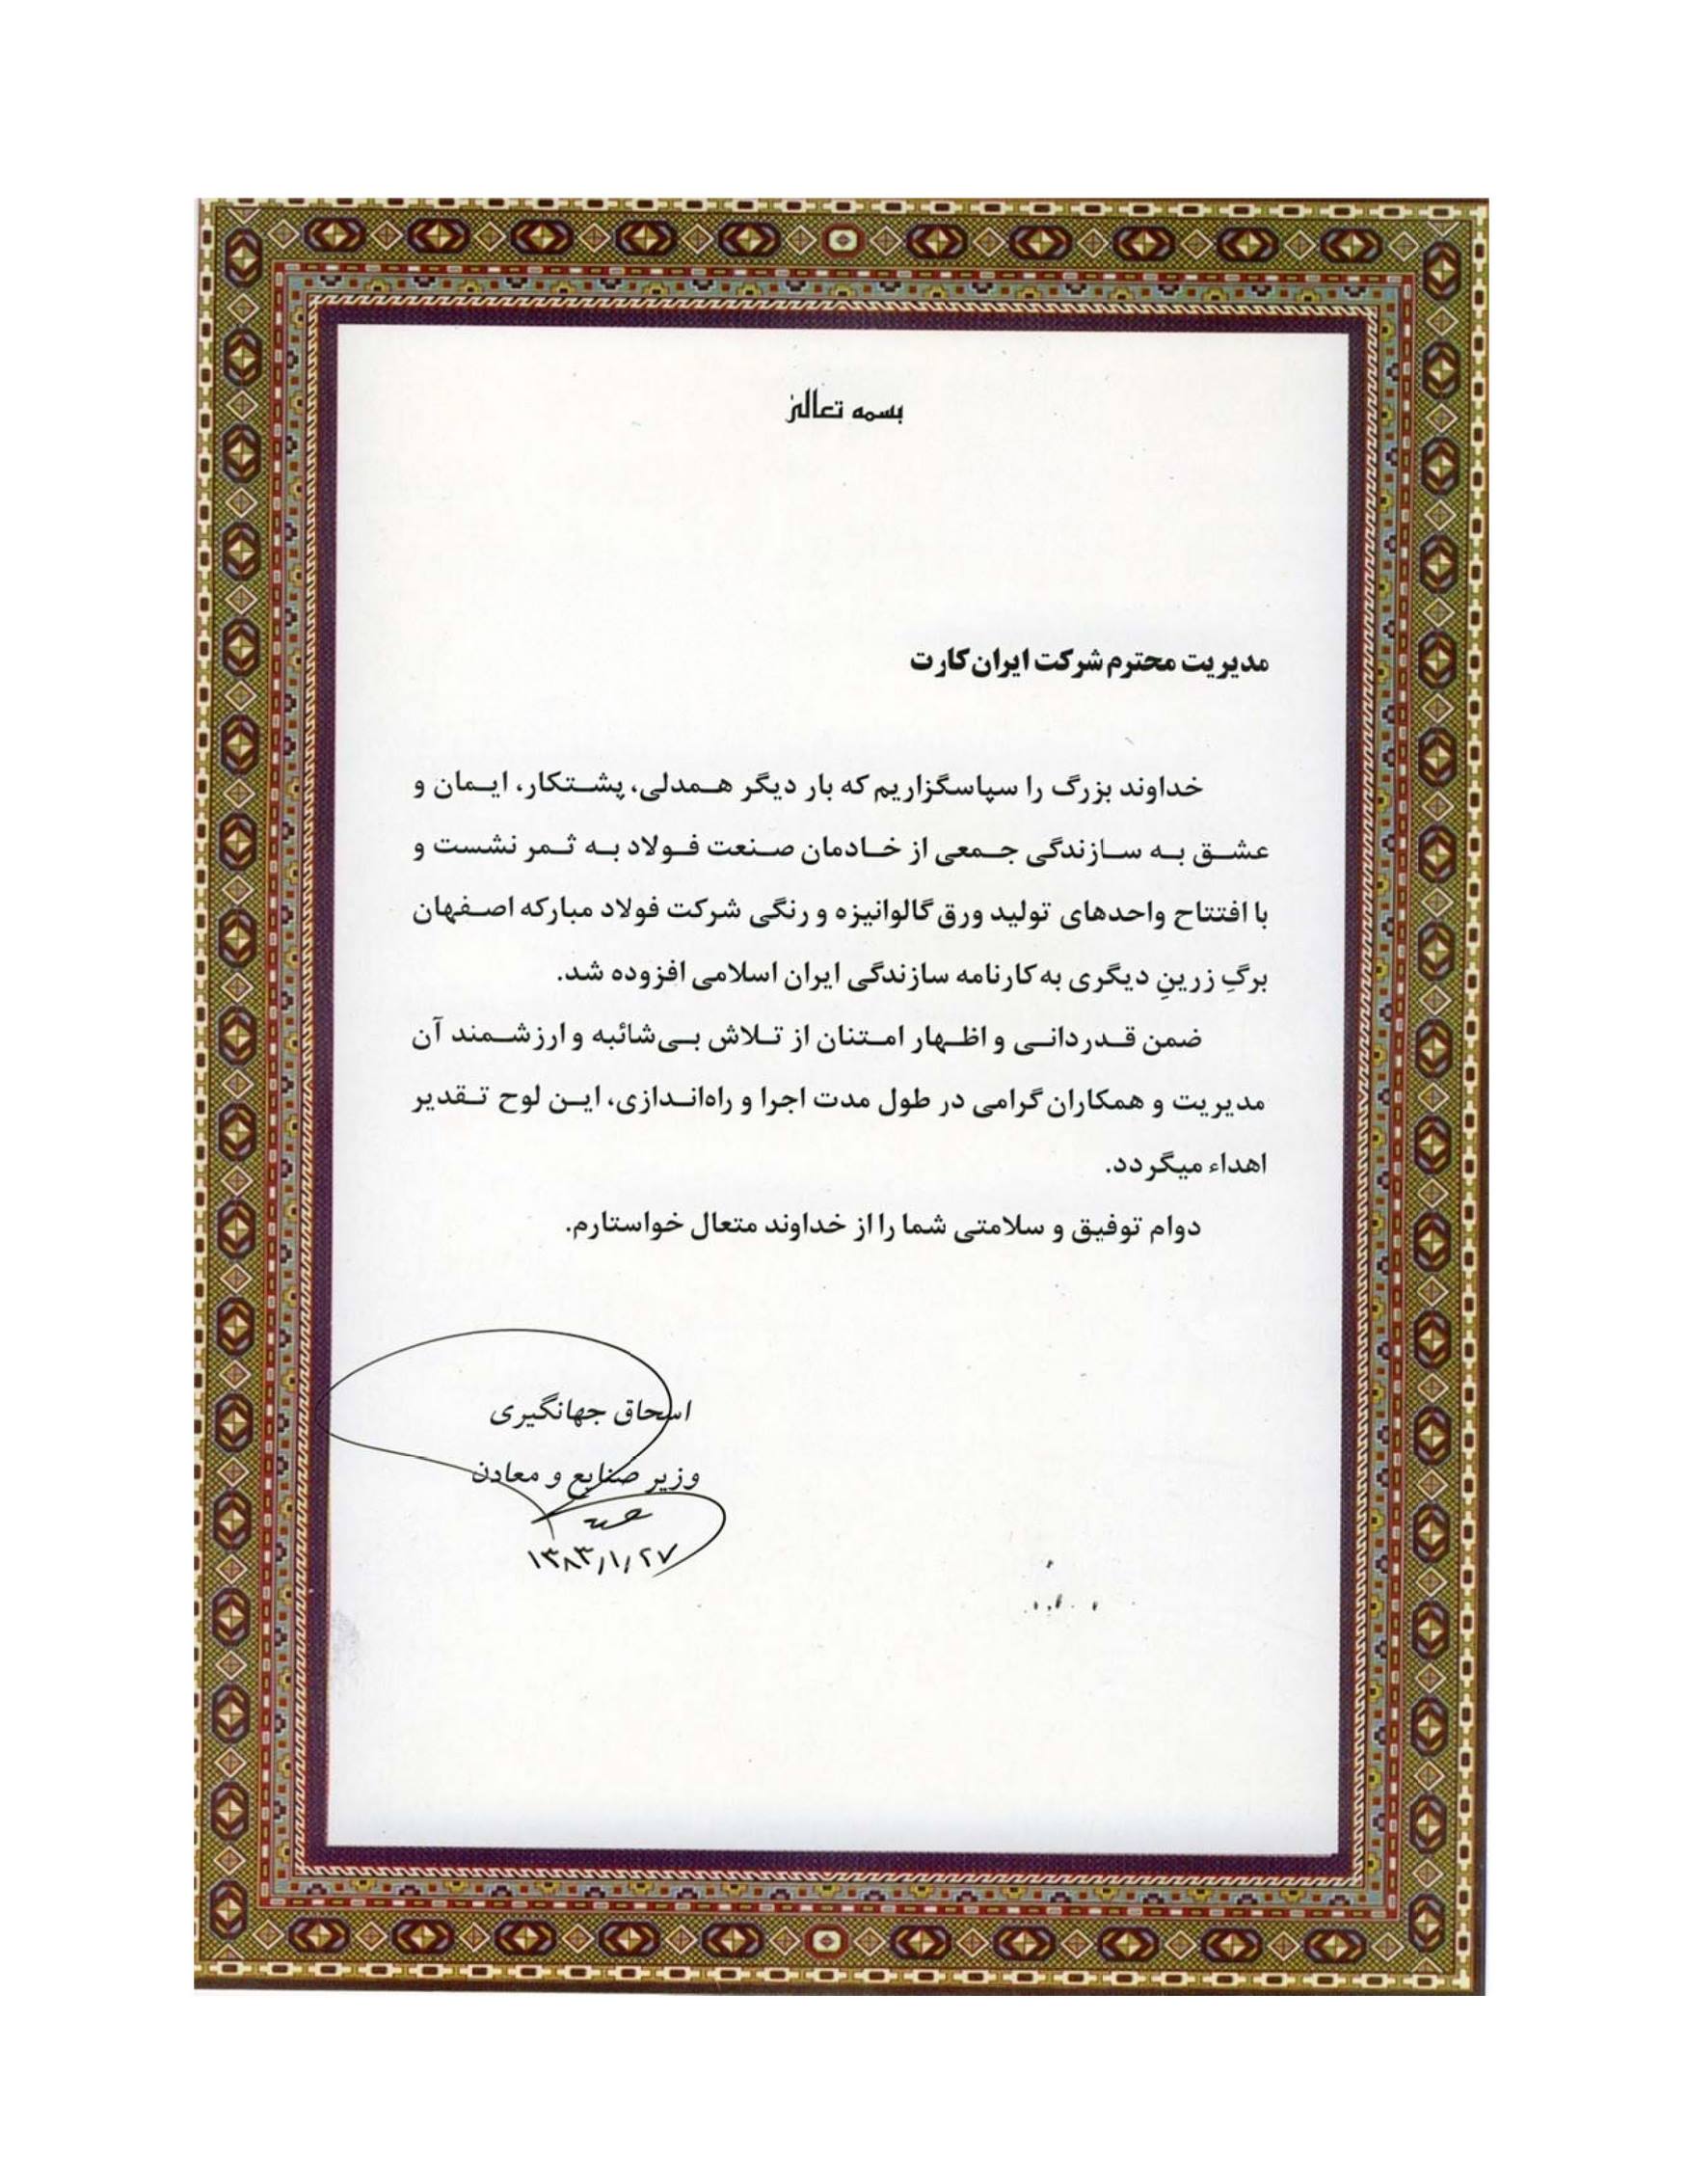 بسمه تعالی
مدیریت محترم شرکت ایران‌کارت
خداوند بزرگ را سپاسگزاریم که بار دیگر همدلی، پشتکار، ایمان و
عشق به سازندگی جمعی از خادمان صنعت فولاد به ثمر نشست و
با افتتاح واحدهای تولید ورق گالوانیزه و رنگی شرکت فولاد مبارکه اصفهان
برگِ زرینِ دیگری به کارنامه سازندگی ایران اسلامی افزوده شد.
ضمن قدردانی و اظهار امتنان از تلاش بی‌شائبه و ارزشمند آن
مدیریت و همکاران گرامی در طول مدت اجرا و راه‌اندازی، این لوح تقدیر
اهداء میگردد.
دوام توفیق و سلامتی شما را از خداوند متعال خواستارم.
اسحاق جهانگیری
وزیر صنایع و معادن
۱۳۸۳/۱/۲۷